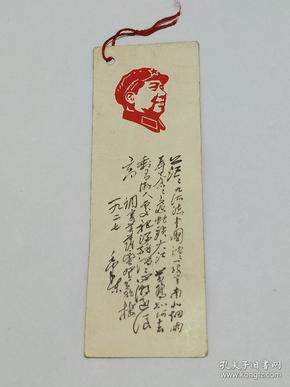 茫茫九派流中國沉沉一线穿南北烟雨
莽苍苍龟蛇锁大江 黄鹤知何去
剩有游人处把酒酹滔滔心潮逐浪
高 调寄菩萨蛮登黄鹤楼
一九二七
毛泽东
孔夫子旧书网